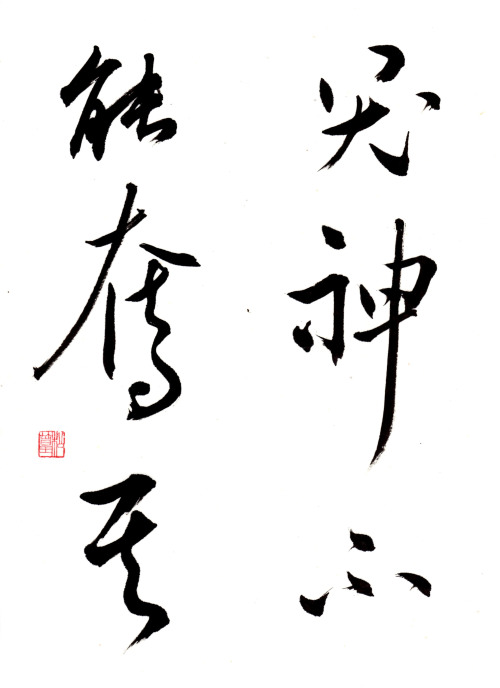 鬼神不
能奪其